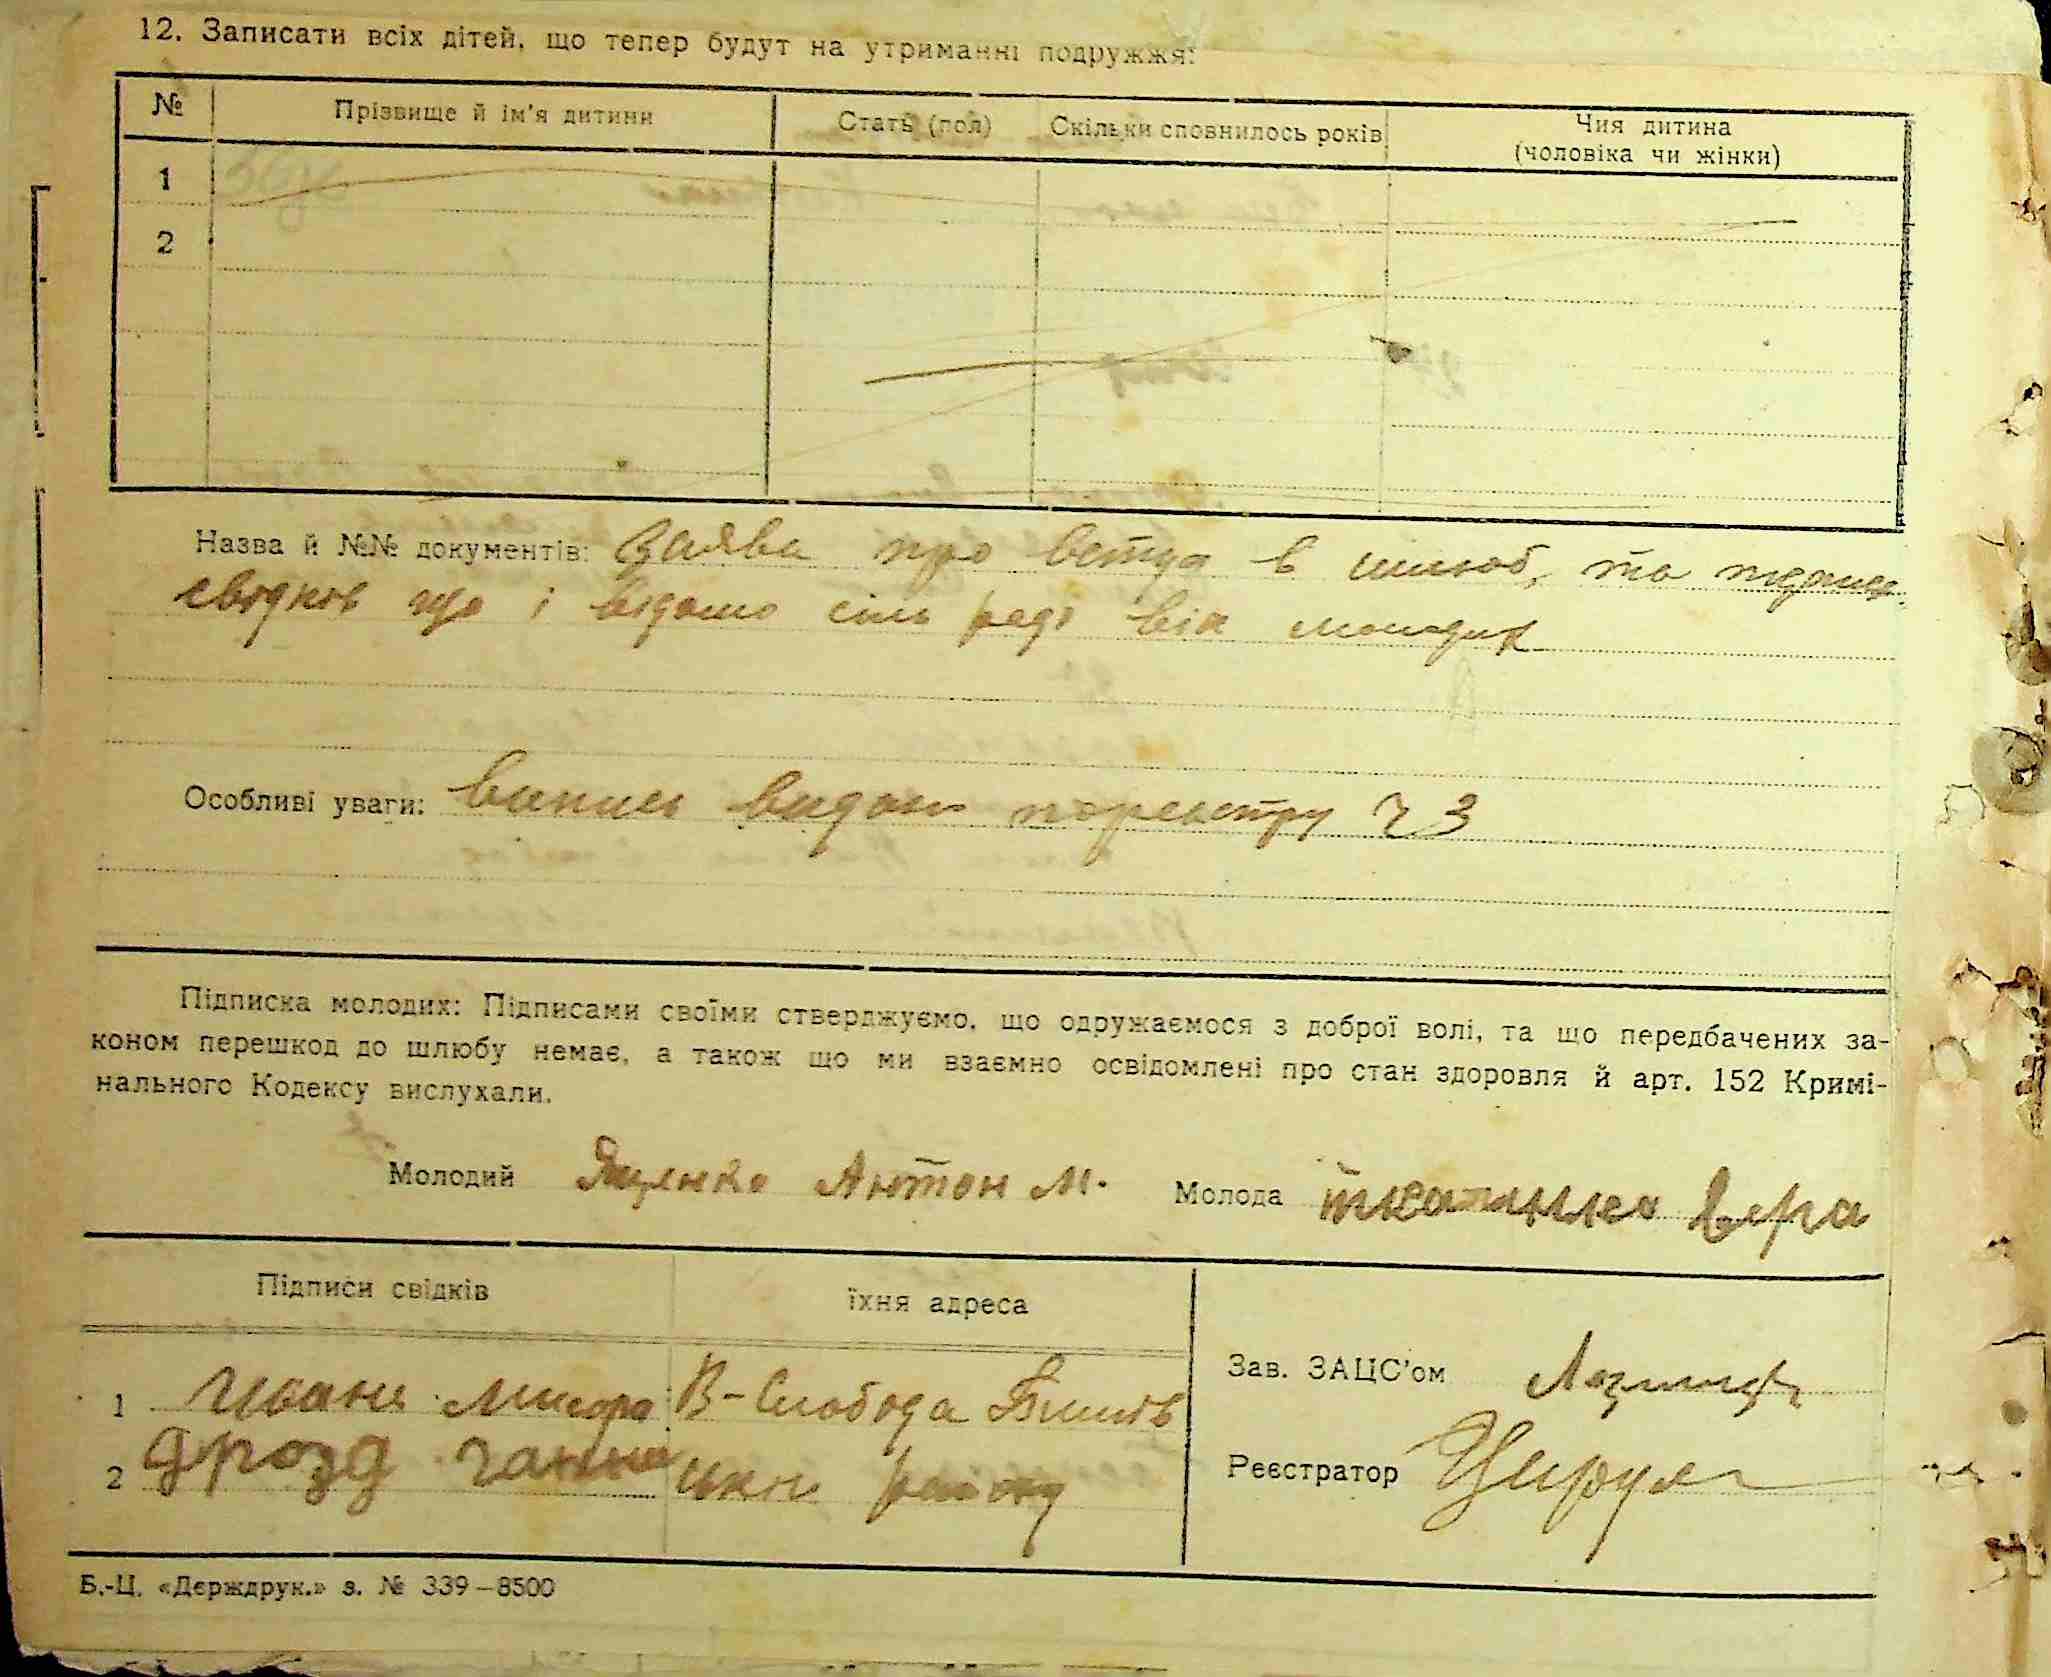 12. Записати всіх дітей, що тепер будут на утриманні подружжя:
№ Прізвище й ім'я дитини Стать (пол) Скільки сповнилось років Чия дитина (чоловіка чи жінки)
1
2
Назва й №№ документів: Заява про вступ в шлюб, та
свідків що і відомо сіль раді вік молодих
Особливі уваги: випись видано по реєстру ч 3
Підписка молодих: Підписами своїми стверджуємо, що одружаємося з доброї волі, та що передбачених за-
коном перешкод до шлюбу немає, а також що ми взаємно освідомлені про стан здоровля й арт. 152 Кримі-
нального Кодексу вислухали.
Молодий Яценко Антон М. Молода Вера
Підписи свідків їхня адреса
1 В-Слобода
2 Дрозд Ганна району
Зав. ЗАЦС'ом
Реєстратор
Б.-Ц. «Держдрук.» з. № 339–8500